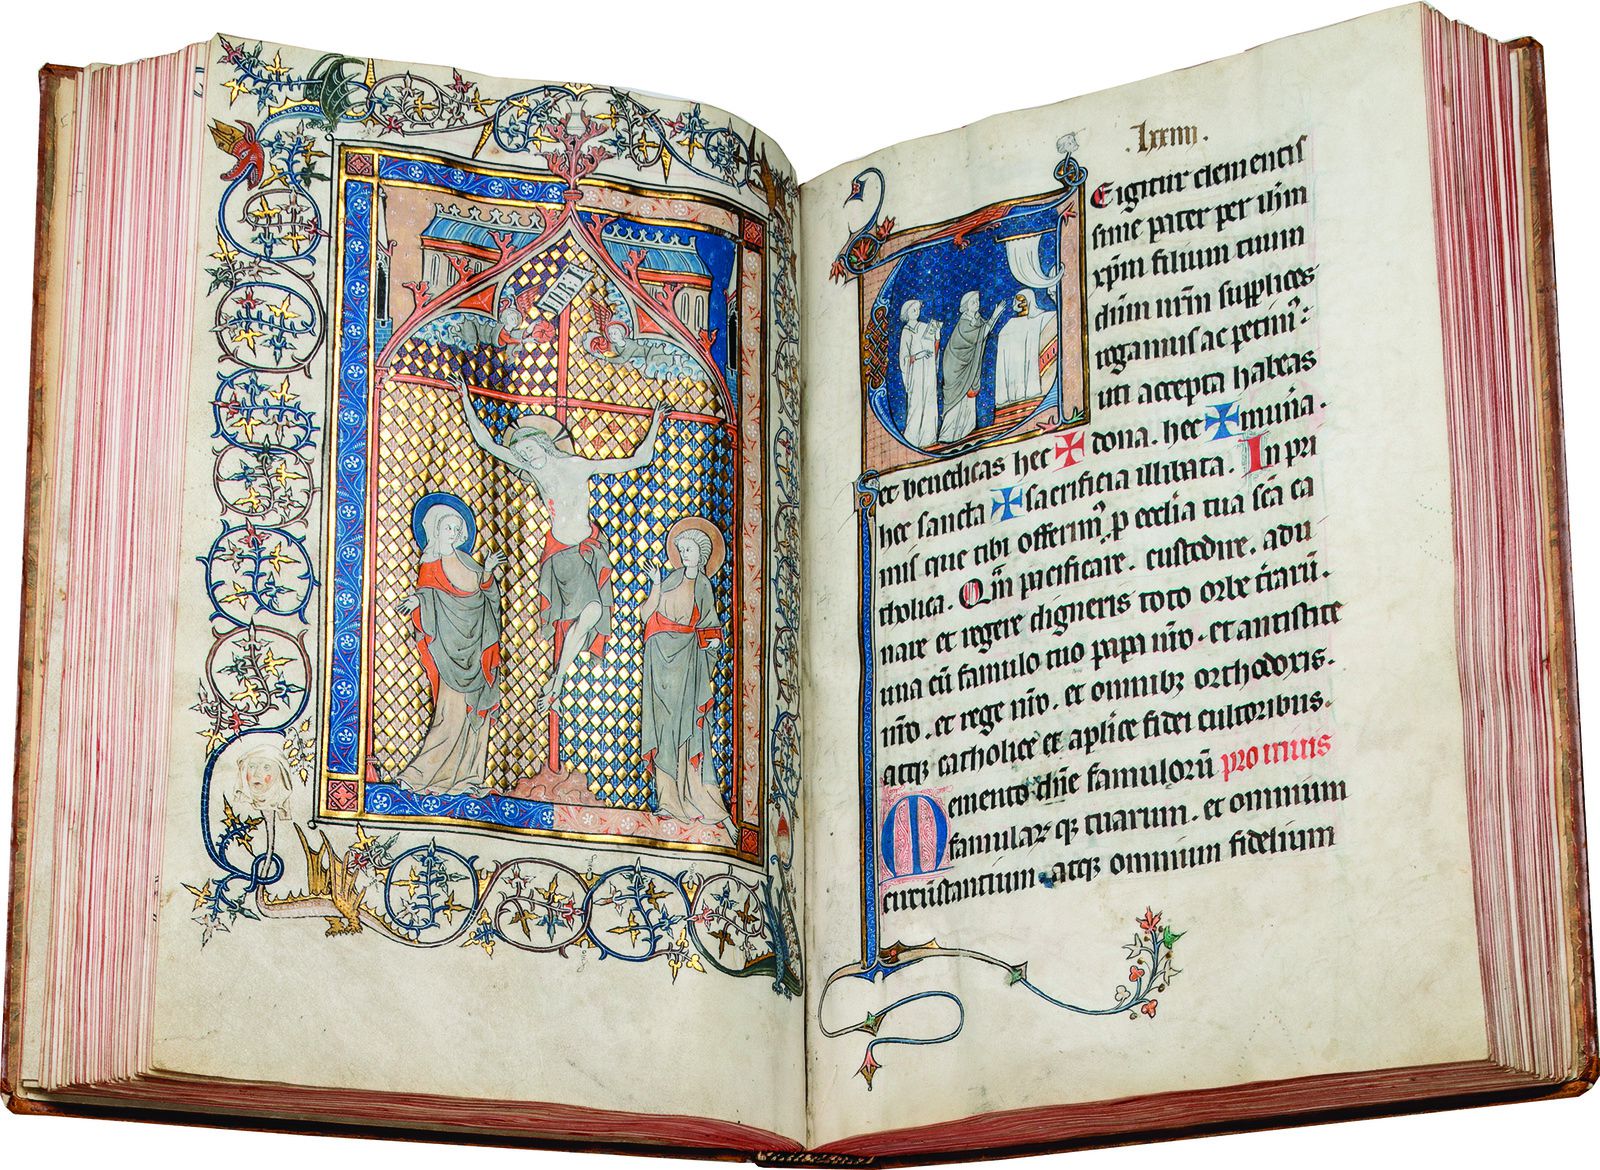 .lxxiiii.
TE igitur clementis
sime pater per ih̄m
xp̄m filium tuum
dn̄m nr̄m supplices
rogamus ac petimꝰ:
uti accepta habeas
et benedicas hec ✠ dona. hec ✠ mun̄a.
hec sancta ✠ sacrificia illibata. In pri
mis que tibi offerimꝰ. p ecclīa tua sc̄a ca
tholica. Qm̄ pacificare. custodire. adu
nare et regere digneris toto orbe tr̄arū.
una cū famulo tuo papa nr̄o. et antistite
nr̄o. et rege nr̄o. et omnibꝫ orthodoxis.
atqꝫ catholice et aplice fidei cultoribus.
Memento dn̄e famulorū pro uiuis
famularꝝ qꝫ tuarum. et omnium
circūstantium. atqꝫ omnium fidelium